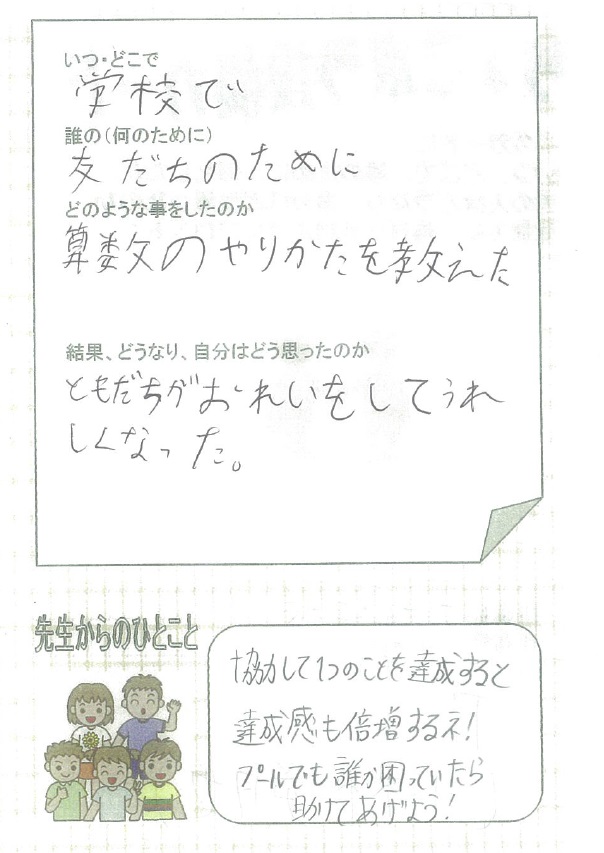 いつ・どこで
学校で
誰の(何のために)
友だちのために
どのような事をしたのか
算数のやりかたを教えた
結果、どうなり、自分はどう思ったのか
ともだちがおれいをしてうれ
しくなった。
先生からのひとこと
協力して1つのことを達成すると
達成感も倍増するネ!
プールでも誰か困っていたら
助けてあげよう!